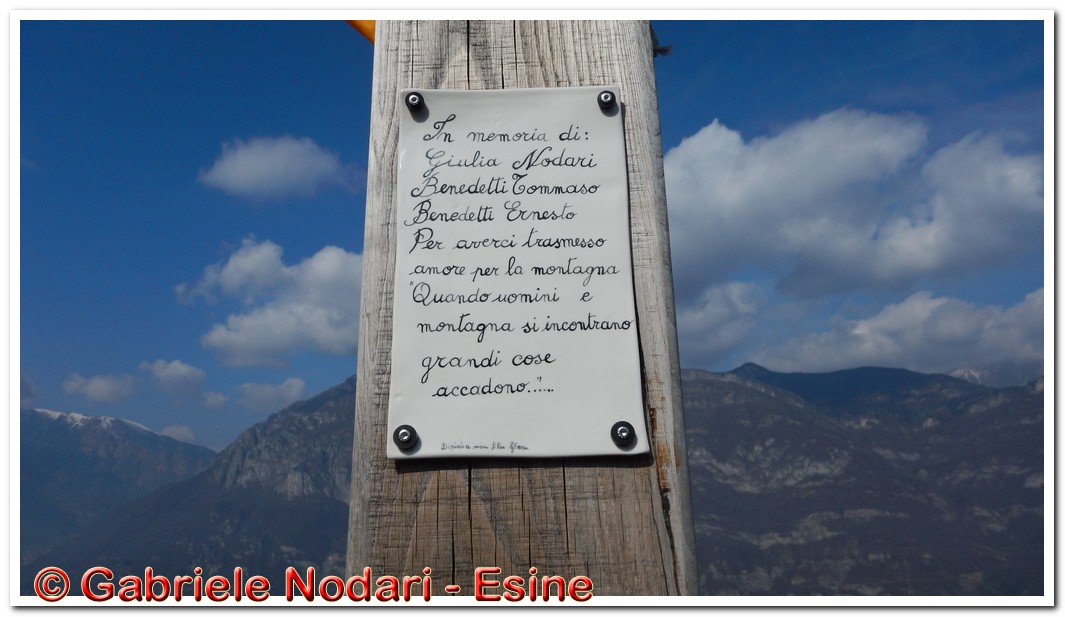 In memoria di:
Giulia Nodari
Benedetti Tommaso
Benedetti Ernesto
Per averci trasmesso
amore per la montagna
"Quando uomini e
montagna si incontrano
grandi cose
accadono..."...
© Gabriele Nodari - Esine